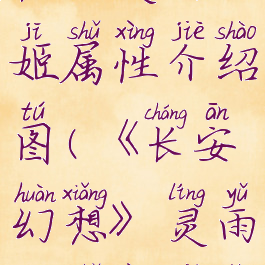 jī shǔ xìng jiè shào
姬属性介绍
tú cháng ān
图(《长安
huàn xiǎng líng yǔ
幻想》 灵雨